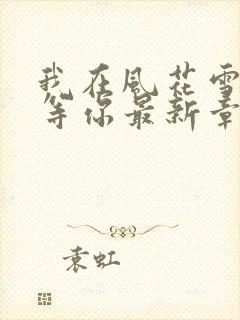 我在風花雪
等你最新章
袁虹